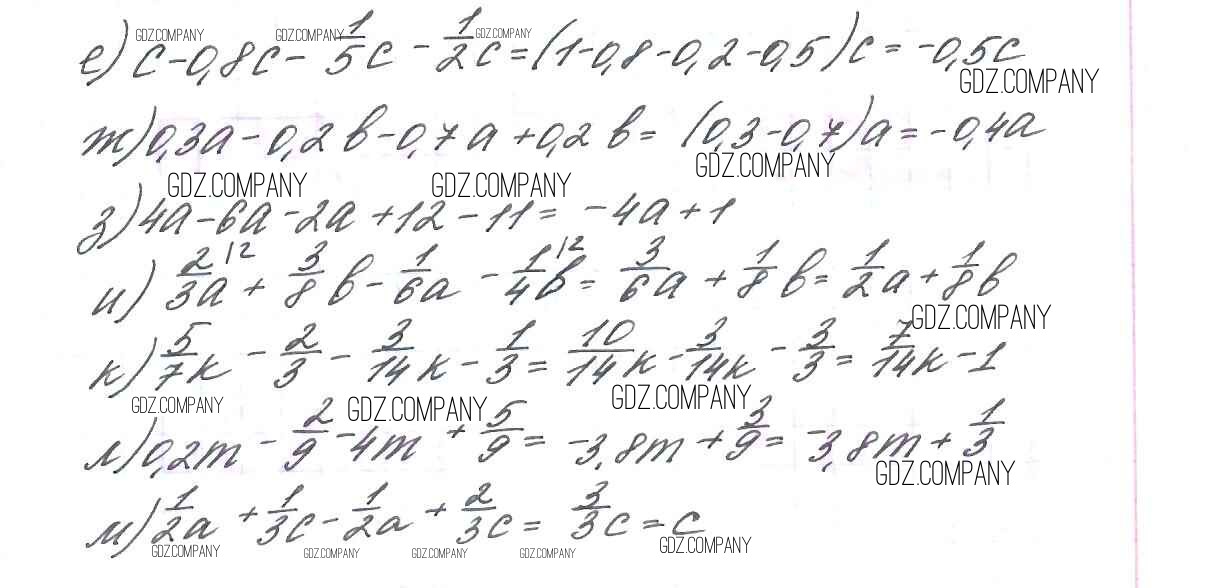 е) c - 0,8c - 1/5 c - 1/2 c = (1 - 0,8 - 0,2 - 0,5)c = -0,5c
GDZ.COMPANY GDZ.COMPANY GDZ.COMPANY GDZ.COMPANY
ж) 0,3a - 0,2b - 0,7a + 0,2b = (0,3 - 0,7)a = -0,4a
GDZ.COMPANY GDZ.COMPANY GDZ.COMPANY
з) 4a - 6a - 2a + 12 - 11 = -4a + 1
и) 2/3 a |2 + 3/8 b - 1/6 a - 1/4 b |2 = 3/6 a + 1/8 b = 1/2 a + 1/8 b
GDZ.COMPANY
к) 5/7 к - 2/3 - 3/14 к - 1/3 = 10/14 к - 3/14 к - 3/3 = 7/14 к - 1
GDZ.COMPANY GDZ.COMPANY GDZ.COMPANY
л) 0,2m - 2/9 - 4m + 5/9 = -3,8m + 3/9 = -3,8m + 1/3
GDZ.COMPANY
м) 1/2 a + 1/3 c - 1/2 a + 2/3 c = 3/3 c = c
GDZ.COMPANY GDZ.COMPANY GDZ.COMPANY GDZ.COMPANY GDZ.COMPANY